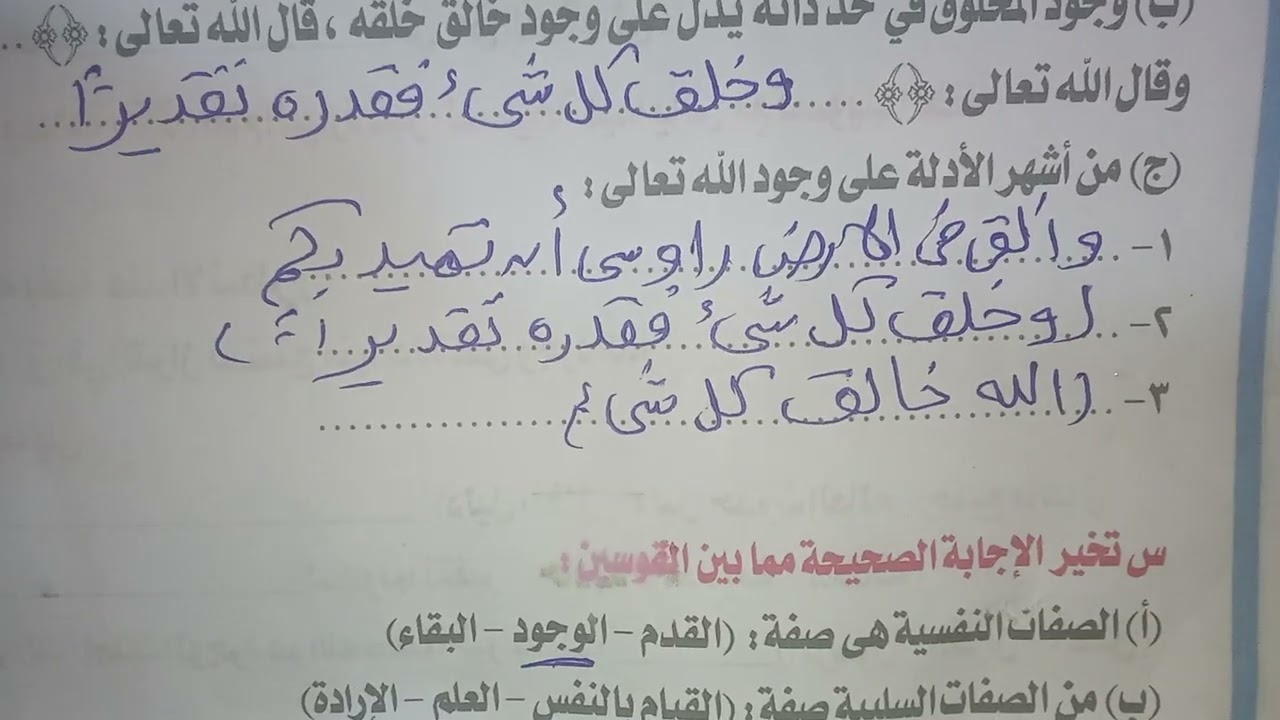 (ب) وجود المخلوق في حد ذاته يدل على وجود خالق خلقه ، قال الله تعالى : ﴿ ...
وقال الله تعالى : ﴿ ﴾ ..... وخلق كل شىء فقدره تقديرًا ...
(ج) من أشهر الأدلة على وجود الله تعالى :
١- وألقى فى الارض رواسى أن تميد بكم
٢- (وخلق كل شىء فقدره تقديرًا)
٣- (الله خالق كل شىء) ...............
س تخير الإجابة الصحيحة مما بين القوسين :
(أ) الصفات النفسية هى صفة : (القدم - الوجود - البقاء)
(ب) من الصفات السلبية صفة : (القيام بالنفس - العلم - الإرادة)